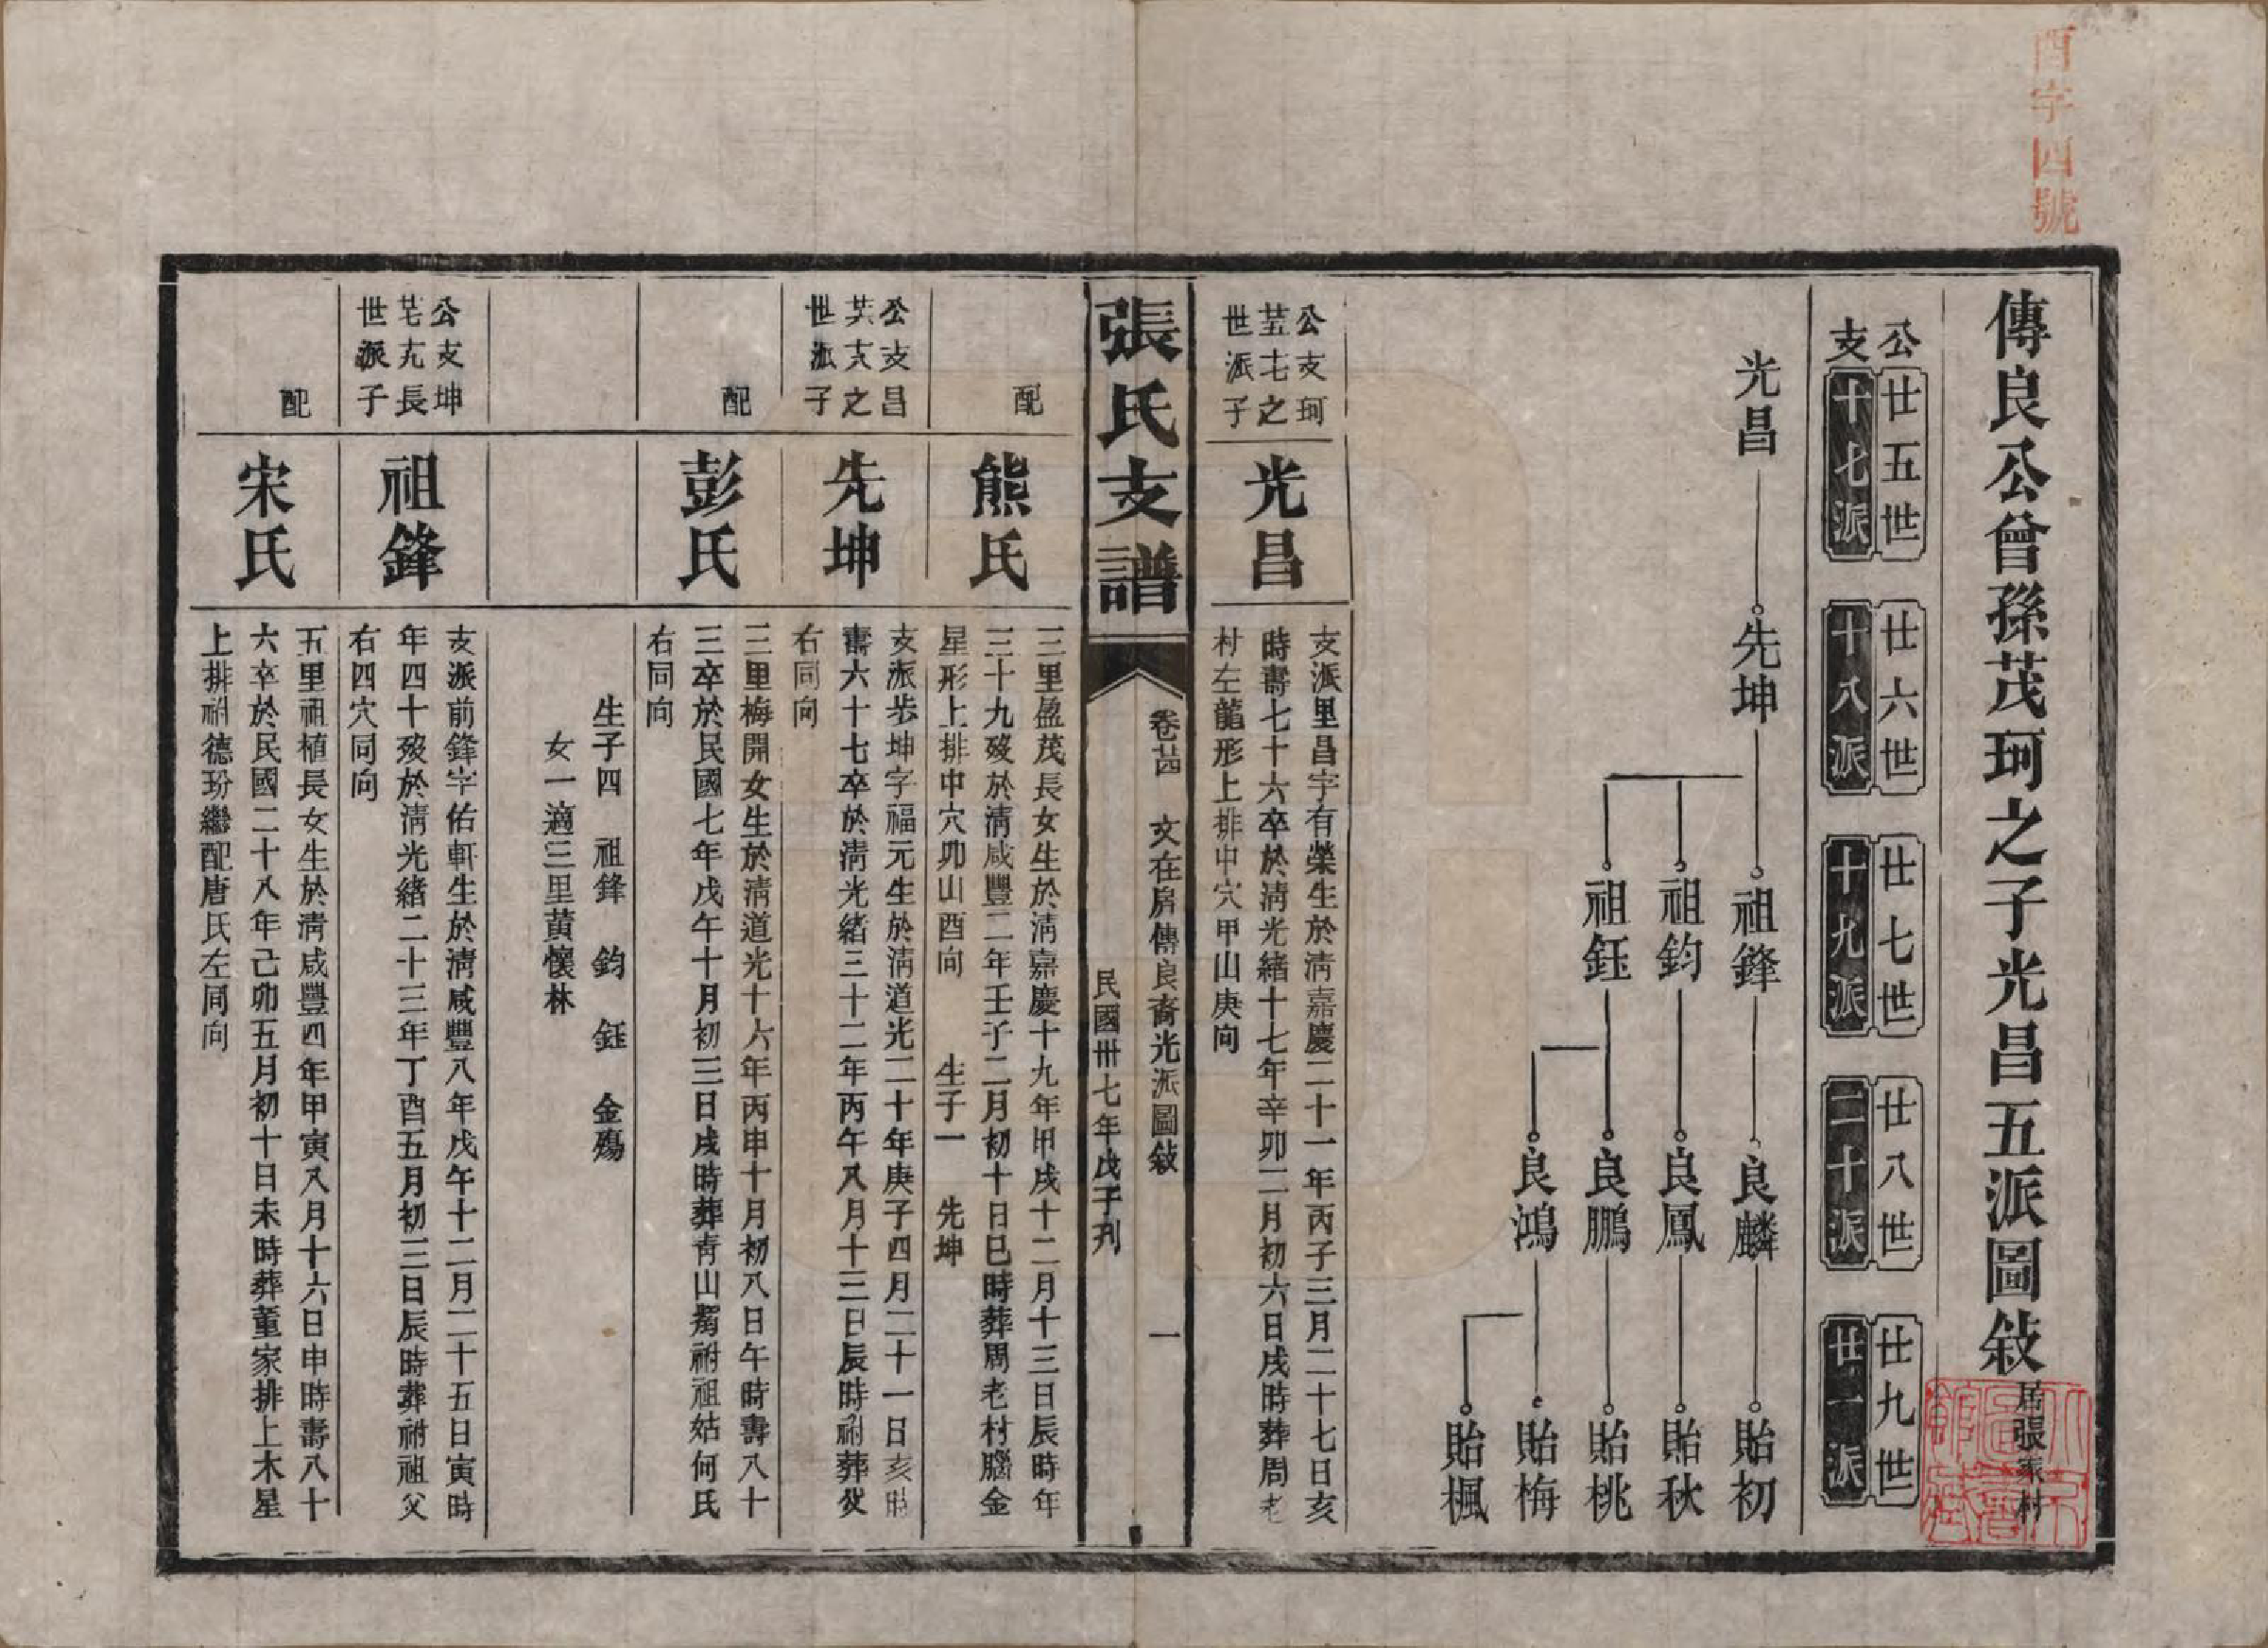 酉字四號
傳良公曾孫茂珂之子光昌五派圖敍 居張家村
公 廿五世 廿六世 廿七世 廿八世 廿九世
支 十七派 十八派 十九派 二十派 廿一派
光昌 先坤 祖鋒 良麟 貽初
祖鈞 良鳳 貽秋
祖鈺 良鵬 貽桃
良鴻 貽梅
貽楓
公支珂
廿五七之
世派子
光昌
支派里昌字有榮生於淸嘉慶二十一年丙子三月二十七日亥
時壽七十六卒於淸光緒十七年辛卯二月初六日戌時葬周老
村左龍形上排中穴甲山庚向
張氏支譜
卷廿四 文在房傳良裔光派圖敍 一
民國卅七年戊子刋
配
熊氏
三里盈茂長女生於淸嘉慶十九年甲戌十二月十三日辰時年
三十九歿於淸咸豐二年壬子二月初十日巳時葬周老村腦金
星形上排中穴卯山酉向 生子一 先坤
公支昌
廿六八之
世派子
先坤
支派步坤字福元生於淸道光二十年庚子四月二十一日亥時
壽六十七卒於淸光緒三十二年丙午八月十三日辰時祔葬父
右同向
配
彭氏
三里梅開女生於淸道光十六年丙申十月初八日午時壽八十
三卒於民國七年戊午十月初三日戌時葬靑山觜祔祖姑何氏
右同向
生子四 祖鋒 鈞 鈺 金殤
女一適三里黃懷林
公支坤
廿七九長
世派子
祖鋒
支派前鋒字佑軒生於淸咸豐八年戊午十二月二十五日寅時
年四十歿於淸光緒二十三年丁酉五月初三日辰時葬祔祖父
右四穴同向
配
宋氏
五里祖植長女生於淸咸豐四年甲寅八月十六日申時壽八十
六卒於民國二十八年己卯五月初十日未時葬董家排上木星
上排祔德玢繼配唐氏左同向